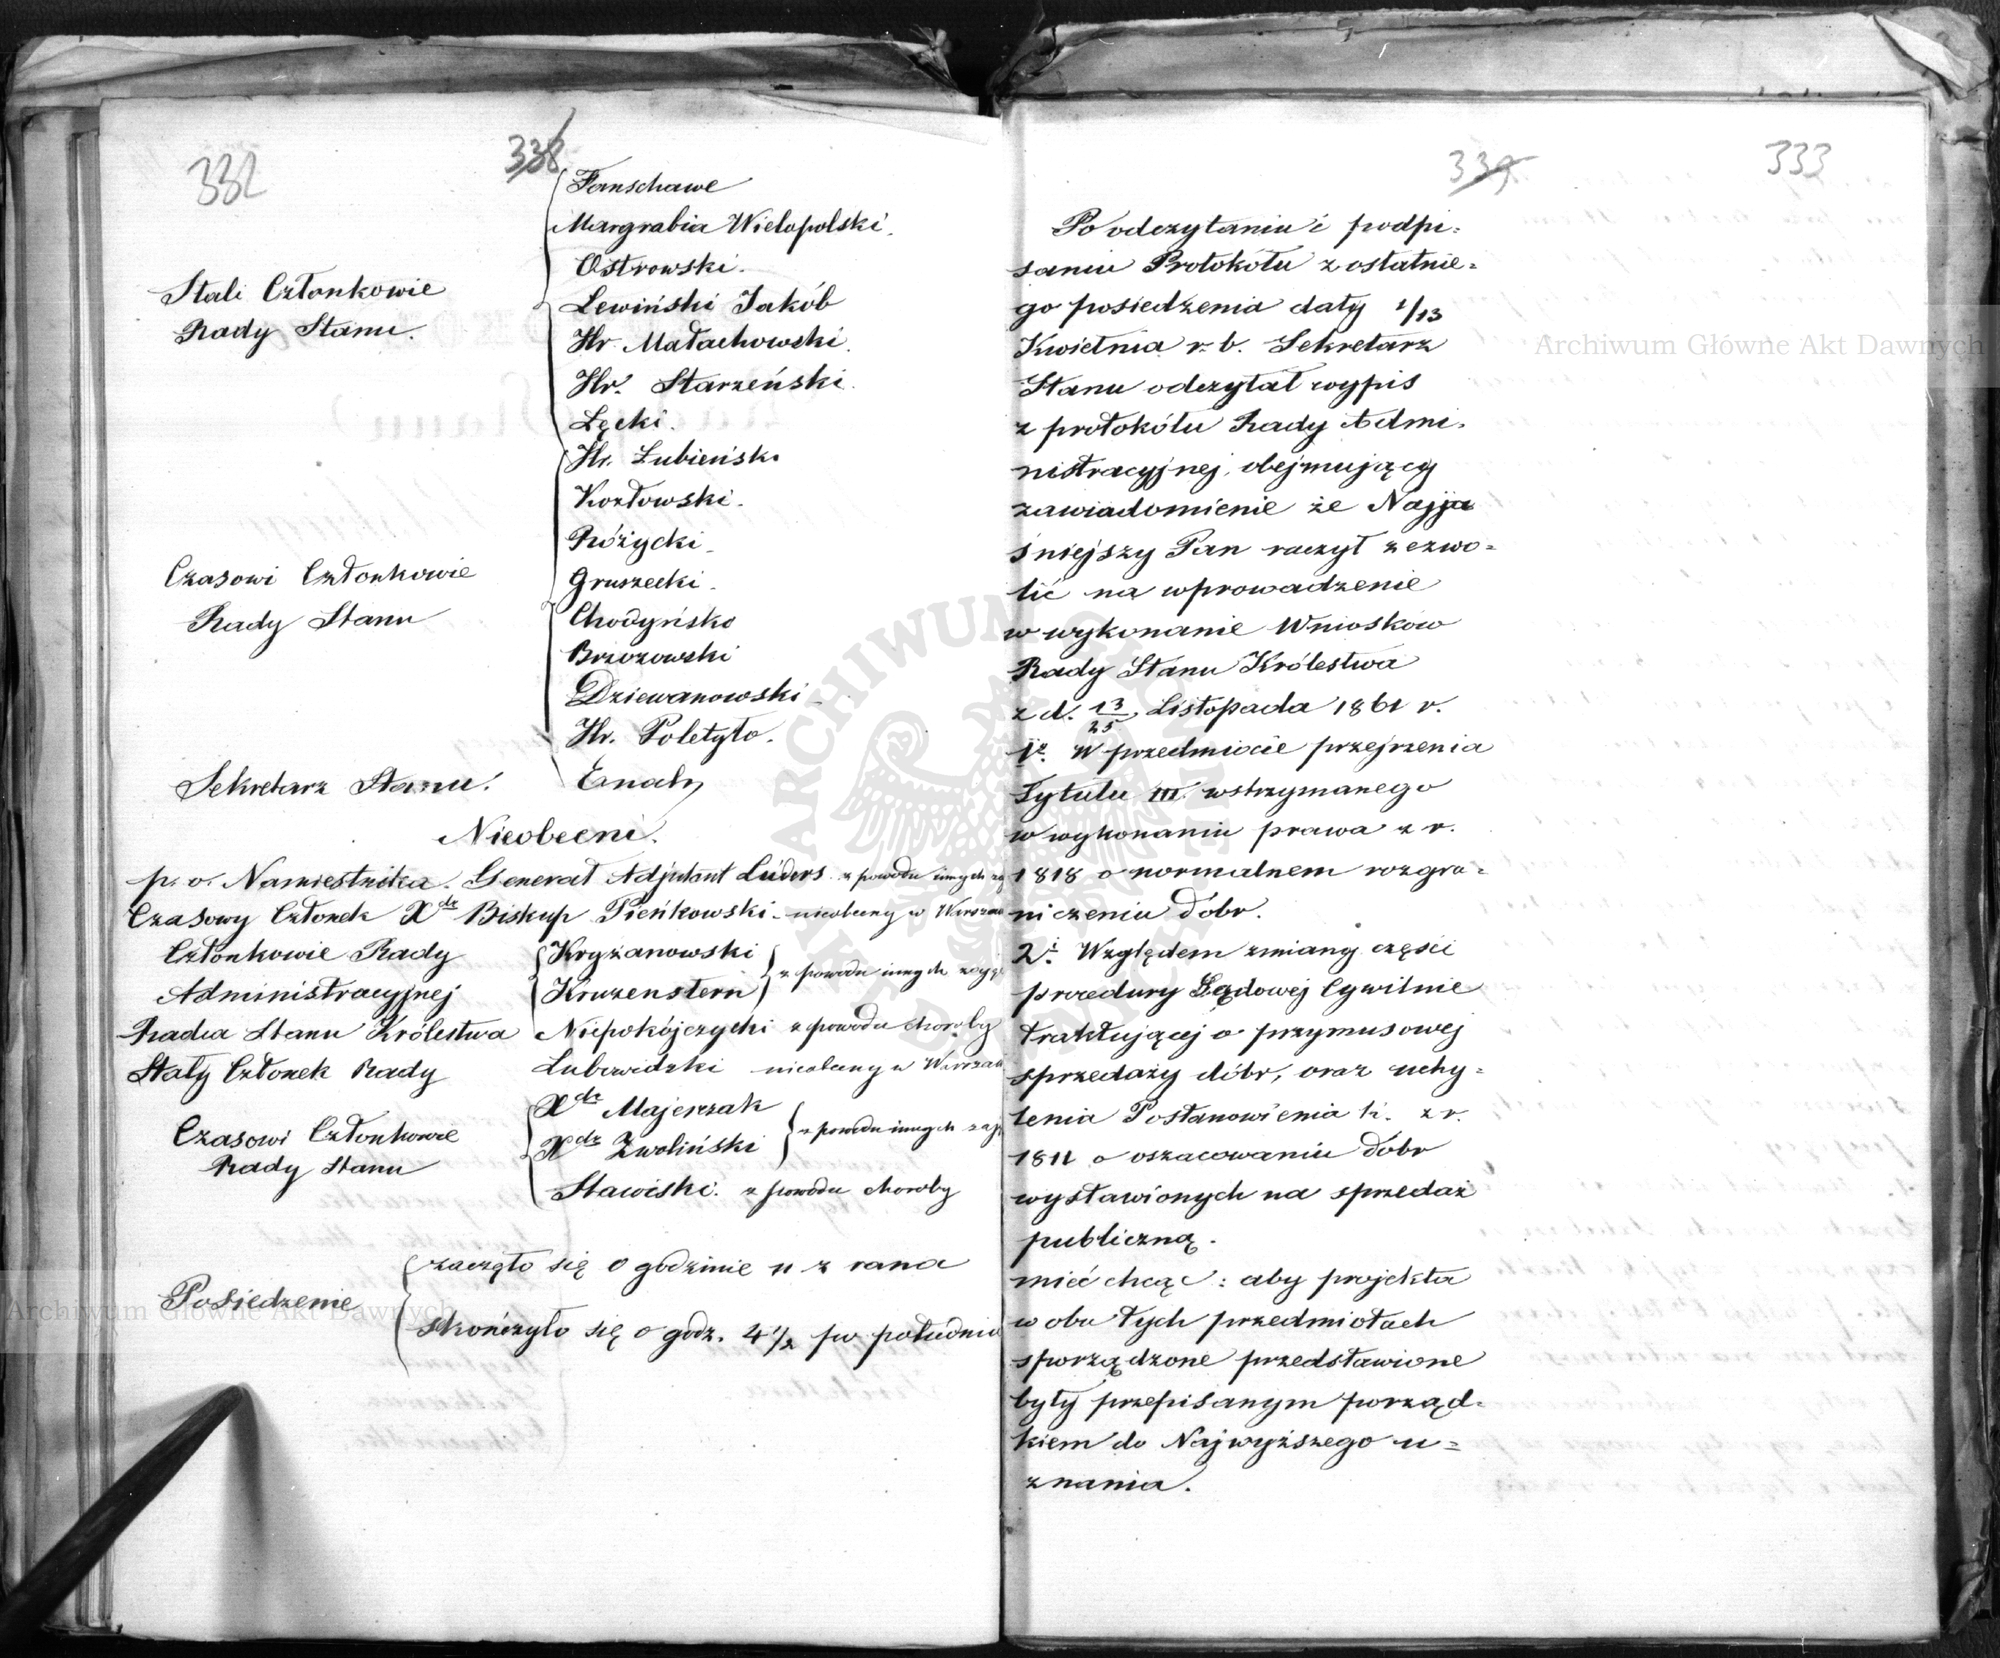 332
338
Fanschawe
Margrabia Wielopolski.
Ostrowski.
Stali Członkowie
Rady Stanu.
Lewiński Jakób
Hr. Małachowski.
Hr. Starzeński.
Łęcki.
Hr. Łubieński
Kozłowski.
Różycki.
Czasowi Członkowie
Rady Stanu
Gruszecki.
Chodyńsko
Brzozowski
Dziewanowski
Hr. Poletyło.
Sekretarz Stanu.
Enoch
Nieobecni.
p. o. Namiestnika. Generał Adjutant Lüders z powodu innych
Czasowy Członek Xdz Biskup Pieńkowski - nieobecny w Warszaw
Członkowie Rady
Administracyjnej
Kryżanowski
Kruzenstern
z powodu innych zaję
Radca Stanu Królestwa Niepokójczycki z powodu choroby
Stały Członek Rady Lubowidzki nieobecny w Warszaw
Czasowi Członkowie
Rady Stanu
Xdz Majerzak
Xdz Zwoliński
z powodu innych zaj
Stawiski. z powodu choroby
Posiedzenie
zaczęło się o godzinie 11 z rana
skończyło się o godz. 4 1/2 po południu
339
333
Po odczytaniu i podpi=
saniu Protokółu z ostatnie=
go posiedzenia daty 1/13
Kwietnia r. b. Sekretarz
Stanu odczytał wypis
z protokółu Rady Admi=
nistracyjnej, obejmujący
zawiadomienie że Najja
śniejszy Pan raczył zezwo=
lić na wprowadzenie
w wykonanie Wniosków
Rady Stanu Królestwa
z d. 13/25 Listopada 1861 r.
1e. W przedmiocie przejrzenia
Tytułu III. wstrzymanego
w wykonaniu prawa z r.
1818 o normalnem rozgra=
niczeniu dóbr.
2e. Względem zmiany części
procedury Sądowej Cywilnie
traktującej o przymusowej
sprzedaży dóbr, oraz uchy=
lenia Postanowienia k. z r.
1811 o oszacowaniu dóbr
wystawionych na sprzedaż
publiczną.
mieć chcąc: aby projekta
w obu tych przedmiotach
sporządzone przedstawione
były przepisanym porząd=
kiem do Najwyższego u=
znania.
Archiwum Główne Akt Dawnych
Archiwum Główne Akt Dawnych